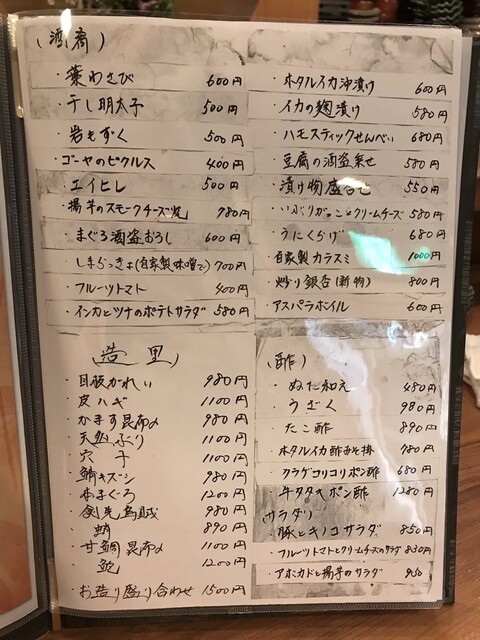 (酒肴)
・葉わさび 600円
・干し明太子 500円
・岩もずく 500円
・ゴーヤのピクルス 400円
・エイヒレ 500円
・揚芋のスモークチーズ 780円
・まぐろ酒盗おろし 600円
・しまらっきょ(自家製味噌で) 700円
・フルーツトマト 400円
・インカとツナのポテトサラダ 580円
・ホタルイカ沖漬け 600円
・イカの麹漬け 580円
・ハモスティックせんべい 680円
・豆腐の酒盗乗せ 580円
・漬け物盛合せ 550円
・いぶりがっことクリームチーズ 580円
・うにくらげ 680円
・自家製カラスミ 1000円
・炒り銀杏(新物) 800円
・アスパラボイル 600円
造里)
・目板かれい 980円
・皮ハギ 1100円
・かます昆布〆 980円
・天然ぶり 1100円
・穴子 1100円
・鯖キズシ 980円
・本まぐろ 1200円
・剣先烏賊 980円
・蛸 890円
・甘鯛昆布〆 1100円
・鮑 1200円
・お造り盛り合わせ 1500円
(酢)
・ぬた和え 480円
・うざく 980円
・たこ酢 890円
・ホタルイカ酢みそ掛 780円
・クラゲコリコリポン酢 680円
・牛タタキポン酢 1280円
(サラダ)
・豚とキノコサラダ 850円
・フルーツトマトとクリームチーズのサラダ 830円
・アボカドと揚芋のサラダ 950